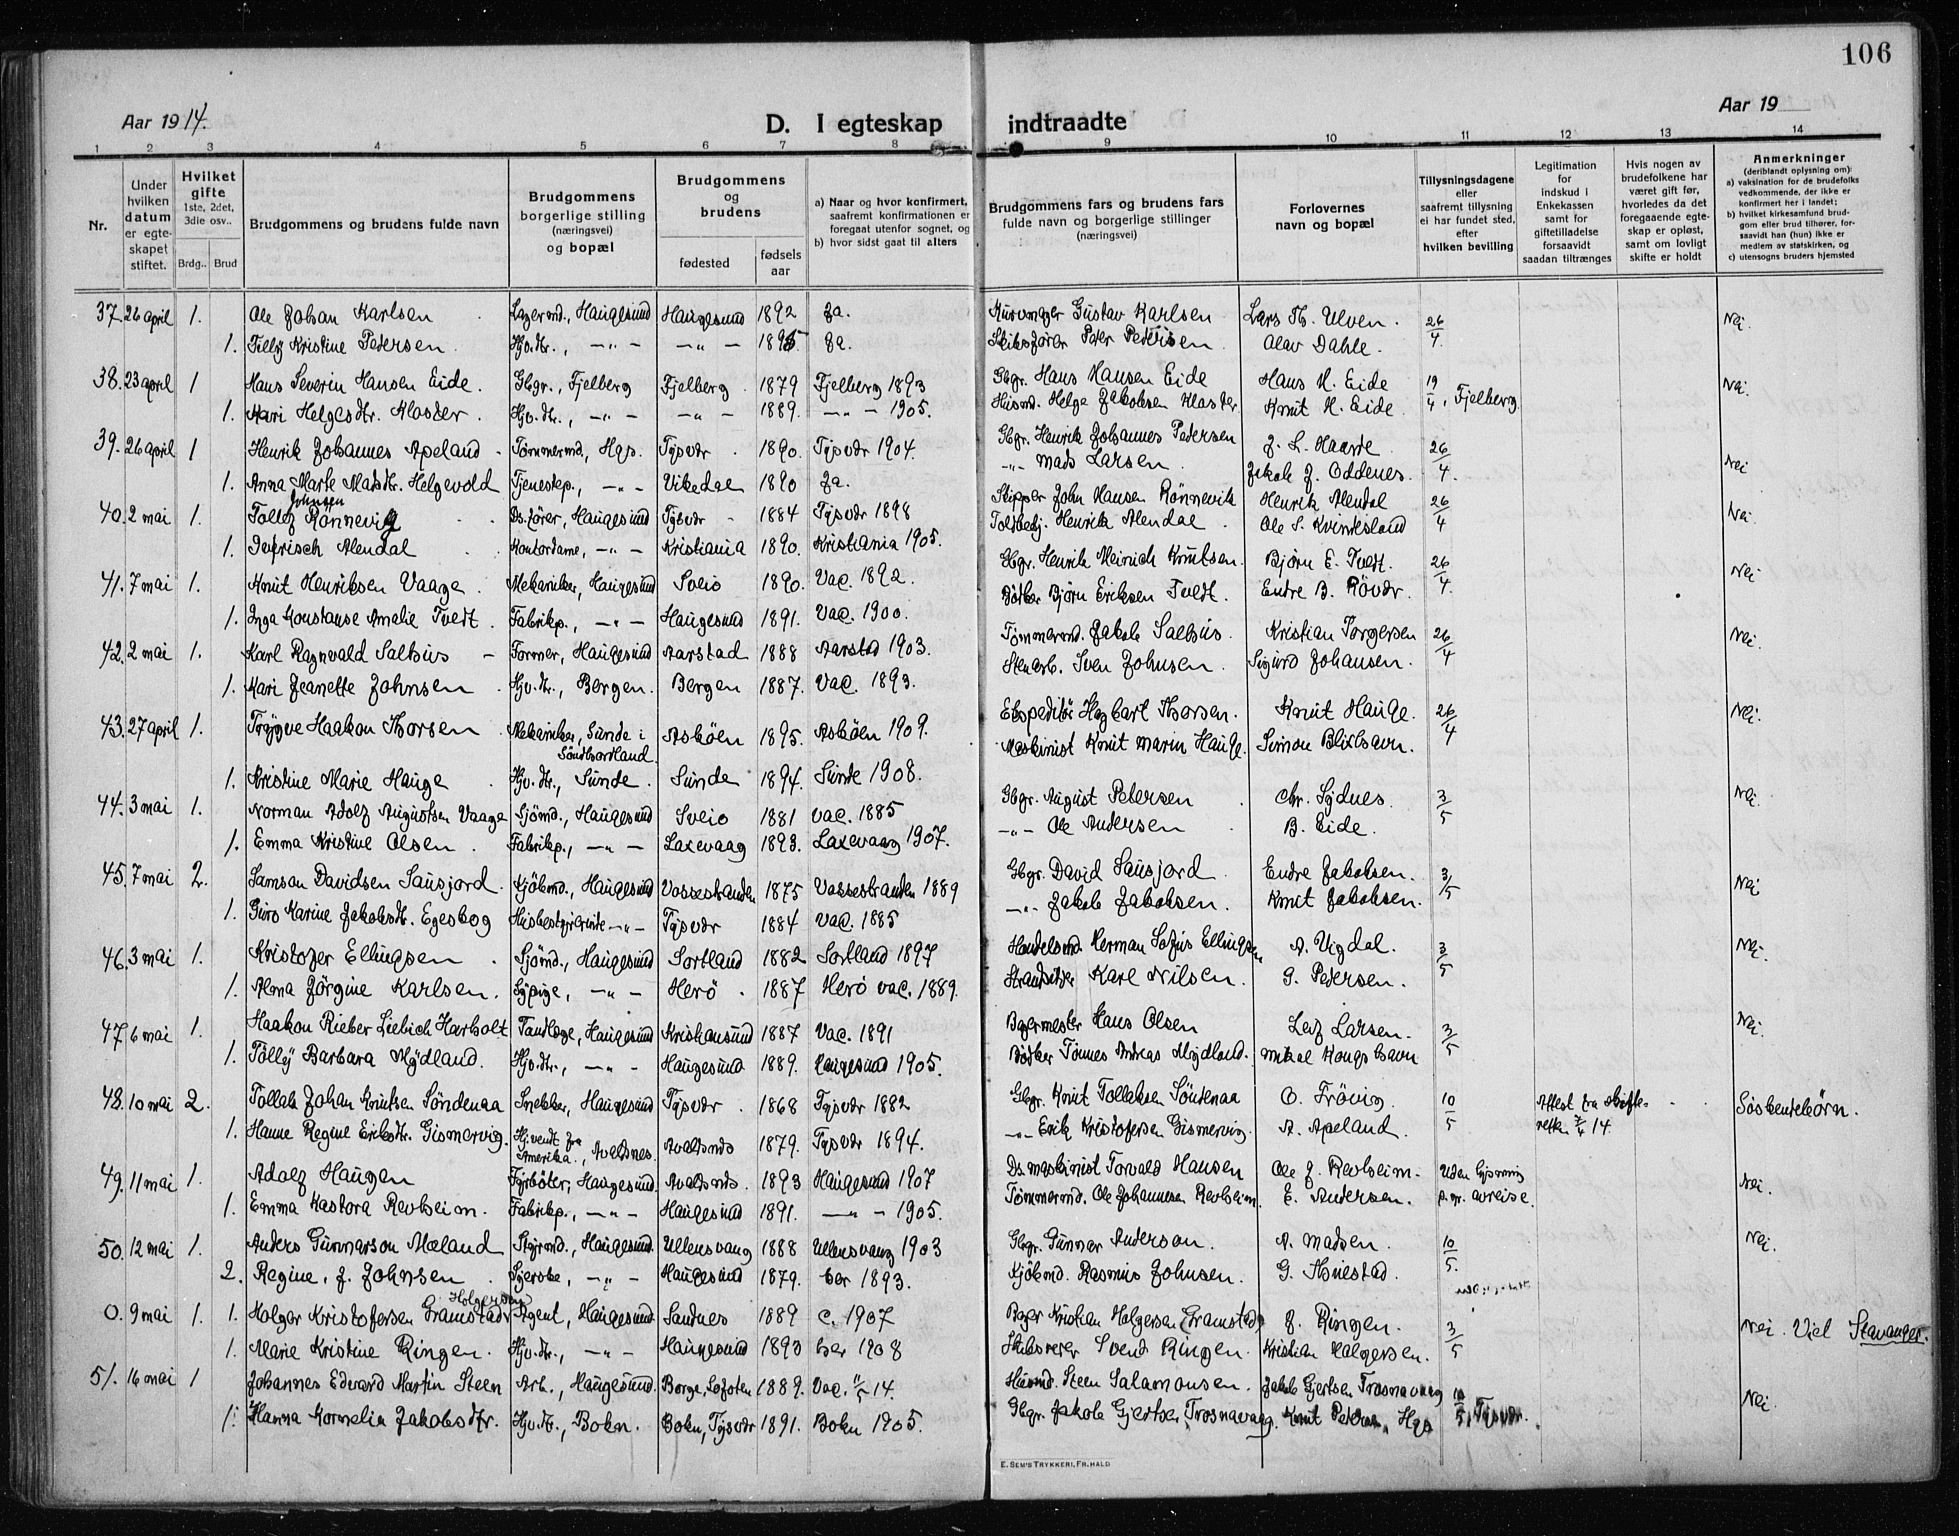 106
Aar 1914. D. I egteskap indtraadte Aar 19
1 2 3 4 5 6 7 8 9 10 11 12 13 14
Nr.
Under hvilken datum er egteskapet stiftet.
Hvilket gifte 1ste, 2det, 3die osv.. Brdg.. Brud
Brudgommens og brudens fulde navn
Brudgommens borgerlige stilling (næringsvei) og bopæl
Brudgommens og brudens
fødested
fødsels aar
a) Naar og hvor konfirmert, saafremt konfirmationen er foregaat utenfor sognet, og
b) hvor sidst gaat til alters
Brudgommens fars og brudens fars fulde navn og borgerlige stillinger (næringsvei)
Forlovernes navn og bopæl
Tillysningsdagene eller saafremt tillysning ei har fundet sted, efter hvilken bevilling
Legitimation for indskud i Enkekassen samt for giftetilladelse forsaavidt saadan tiltrænges
Hvis nogen av brudefolkene har været gift før, hvorledes da det foregaaende egteskap er opløst, samt om lovligt skifte er holdt
Anmerkninger (deriblandt oplysning om):
a) vaksination for de brudefolks vedkommende, der ikke er konfirmert her i landet;
b) hvilket kirkesamfund brudgom eller brud tilhører, forsaavidt han (hun) ikke er medlem av statskirken, og
c) utensogns bruders hjemsted
37. 26 april 1. Ole Johan Karlsen Lagermd., Haugesund Haugesund 1892 Ja. Kurvmager Gustav Karlsen Lars Th. Ulven. 26/4 Nei
1. Tilly Kristine Pedersen Hjv.dtr., -"- -"- 1895 Ja. Skibsfører Peter Pedersen Olav Dahle.
38. 23 april 1 Hans Severin Hansen Eide. Gbgr., Fjelberg Fjelberg 1879 Fjelberg 1893 Gbgr. Hans Hansen Eide Hans H. Eide 19/4, Fjelberg Nei
1. Kari Helgesdtr. Kloster. Hjv.dtr., -"- -"- 1889. -"- 1905. Husmd. Helge Jakobsen Kloster Knut H. Eide.
39. 26 april 1 Henrik Johannes Apeland Tømmermd., Hgs. Tysvær 1890. Tysvær 1904. Gbgr. Henrik Johannes Pedersen J. L. Haavre 26/4. Nei
1. Anna Marte Madsdtr. Helgevold Tjenestep., -"- Vikedal 1890 Ja. -"- Mads Larsen. Jakob J. Oddenes.
40. 2 mai 1. Tollef Johnsen Rönnevig Ds.fører, Haugesund Tysvær 1884 Tysvær 1898 Skipper John Hansen Rönnevik Henrik Alendal 26/4 Nei
1. Alendal Kontordame, -"- Kristiania 1890. Kristiania 1905. Toldbetj. Henrik Alendal. Ole S. Kvinnesland
41. 7 mai 1. Knut Henriksen Vaage. Mekaniker, Haugesund Sveio 1890. Vac. 1892. Gbgr. Henrik Meinich Knutsen. Bjørn E. Tvedt. 26/4. Nei
1. Inga Konstanse Amalie Tvedt. Fabrikp., -"- Haugesund 1891. Vac. 1900. Bødker Bjørn Eriksen Tvedt. Endre B. Røvær.
42. 2 mai 1. Karl Ragnvald Saltvis Former, Haugesund Aarstad 1888 Aarstad 1903. Tømmermd. Jakob Saltvis. Kristian Torgersen 26/4 Nei.
1. Kari Jeanette Johnsen Hjv.dtr., Bergen. Bergen 1887. Vac. 1893. Stenarb. Sven Johnsen. Sigurd Johansen.
43. 27 april 1. Trygve Haakon Thorsen Mekaniker, Sunde i Søndhordland. Askøen 1895. Askøen 1909. Ekspeditør Hagbart Thorsen. Knut Hauge. 26/4 Nei.
1. Kristine Marie Hauge Hjv.dtr., Sunde. Sunde 1894. Sunde 1908. Maskinist Knut Marin Hauge. Simon Blikhavn.
44. 3 mai 1. Norman Adolf Augustsen Vaage Sjømd., Haugesund Sveio 1881 vac. 1885 Gbgr. August Petersen Chr. Sydnes. 3/5 Nei.
1. Emma Kristine Olsen. Fabrikp., -"- Laxevaag 1893. Laxevaag 1907. -"- Ole Andersen B. Eide.
45. 7 mai 2. Samson Davidsen Sausjord. Kjøbmd., Haugesund Vossestranden 1875 Vossestranden 1889 Gbgr. David Sausjord. Endre Jakobsen. 3/5 Nei
1. Guro Karine Jakobsdtr. Egeskog Husbestyrerinde -"- Tysvær 1884 Vac. 1885 -"- Jakob Jakobsen. Knut Jakobsen.
46. 3 mai 1. Kristofer Ellingsen Sjømd., Haugesund Sortland 1882 Sortland 1897 Handelsmd. Herman Sofus Ellingsen A. Vigdal. 3/5 Nei.
1. Alma Jörgine Karlsen. Sypige, -"- Herö. 1887 Herö vac. 1889. Strandsitter Karl Nilsen. G. Pedersen.
47. 6 mai 1. Haakon Rieber Liebich Harboldt Tandlæge, Haugesund Kristiansund 1887 Vac. 1891 Bagermester Hans Olsen Leif Larsen. 3/5 Nei.
1. Tolly Barbara Mydland. Hjv.dtr., -"- Haugesund 1889. Haugesund 1905. Bødker Tønnes Andreas Mydland. Mikal Kongshavn
48. 10 mai 2. Tollak Johan Knutsen Söndenaa Snekker, Haugesund Tysvær. 1868 Tysvær 1882 Gbgr. Knut Tollaksen Söndenaa O. Frövig. 10/5 Attest fra skifteretten 7/4 14. Söskenbebörn.
1. Hanne Regine Eriksdtr. Gismervig. Hj.vendt fra Amerika., Avaldsnes. Avaldsnes 1879. Tysvær 1894. -"- Erik Kristofersen Gismervig. A. Apeland.
49. 11 mai 1. Adolf Haugen Fyrbøter, Haugesund. Avaldsnes. 1893 Haugesund 1907 Ds.maskinist Torvald Hansen Ole J. Revheim. Uden lysning p. gr. avreise. Nei.
1. Emma Kastora Revheim. Fabrikp., -"- Haugesund 1891. -"- 1905. Tømmermd. Ole Johannesen Revheim. E. Andersen.
50. 12 mai 1. Anders Gunnarson Mæland Styrmd., Haugesund. Ullensvang 1888 Ullensvang 1903 Gbgr. Gunnar Anderson. A. Madsen. 10/5. Nei.
2. Regine. J. Johnsen Syerske, -"- Haugesund 1879. her 1893. Kjøbmd. Rasmus Johnsen. G. Thuestad.
0. 9 mai 1. 1. Holger Kristofersen Holgersen Gramstad Agent, Haugesund Sandnes 1889 c. 1907 Bager Kristian Holgersen Gramstad J. Ringen. 3/5 Nei. Viel Stavanger.
1. Marie Kristine Ringen. Hjv.dtr., -"- Haugesund 1893 her 1908 Skibsreder Svend Ringen. Kristian Holgersen.
51. 16 mai 1 Johannes Edvard Martin Steen Arb., Haugesund. Borge, Lofoten 1889. Vac. 11/5 14. Husmd. Steen Salamonsen. Jakob Gjertsen Trosnavaag 10/5, Tysvær. Nei.
1. Hanna Kornelia Jakobsdtr. Hjv.dtr., Bokn. Bokn, Tysvær 1891. Bokn 1905. Gbgr. Jakob Gjertsen Trosnavaag. Knut Peders, Hgs
E. SEM'S TRYKKERI, FR.HALD